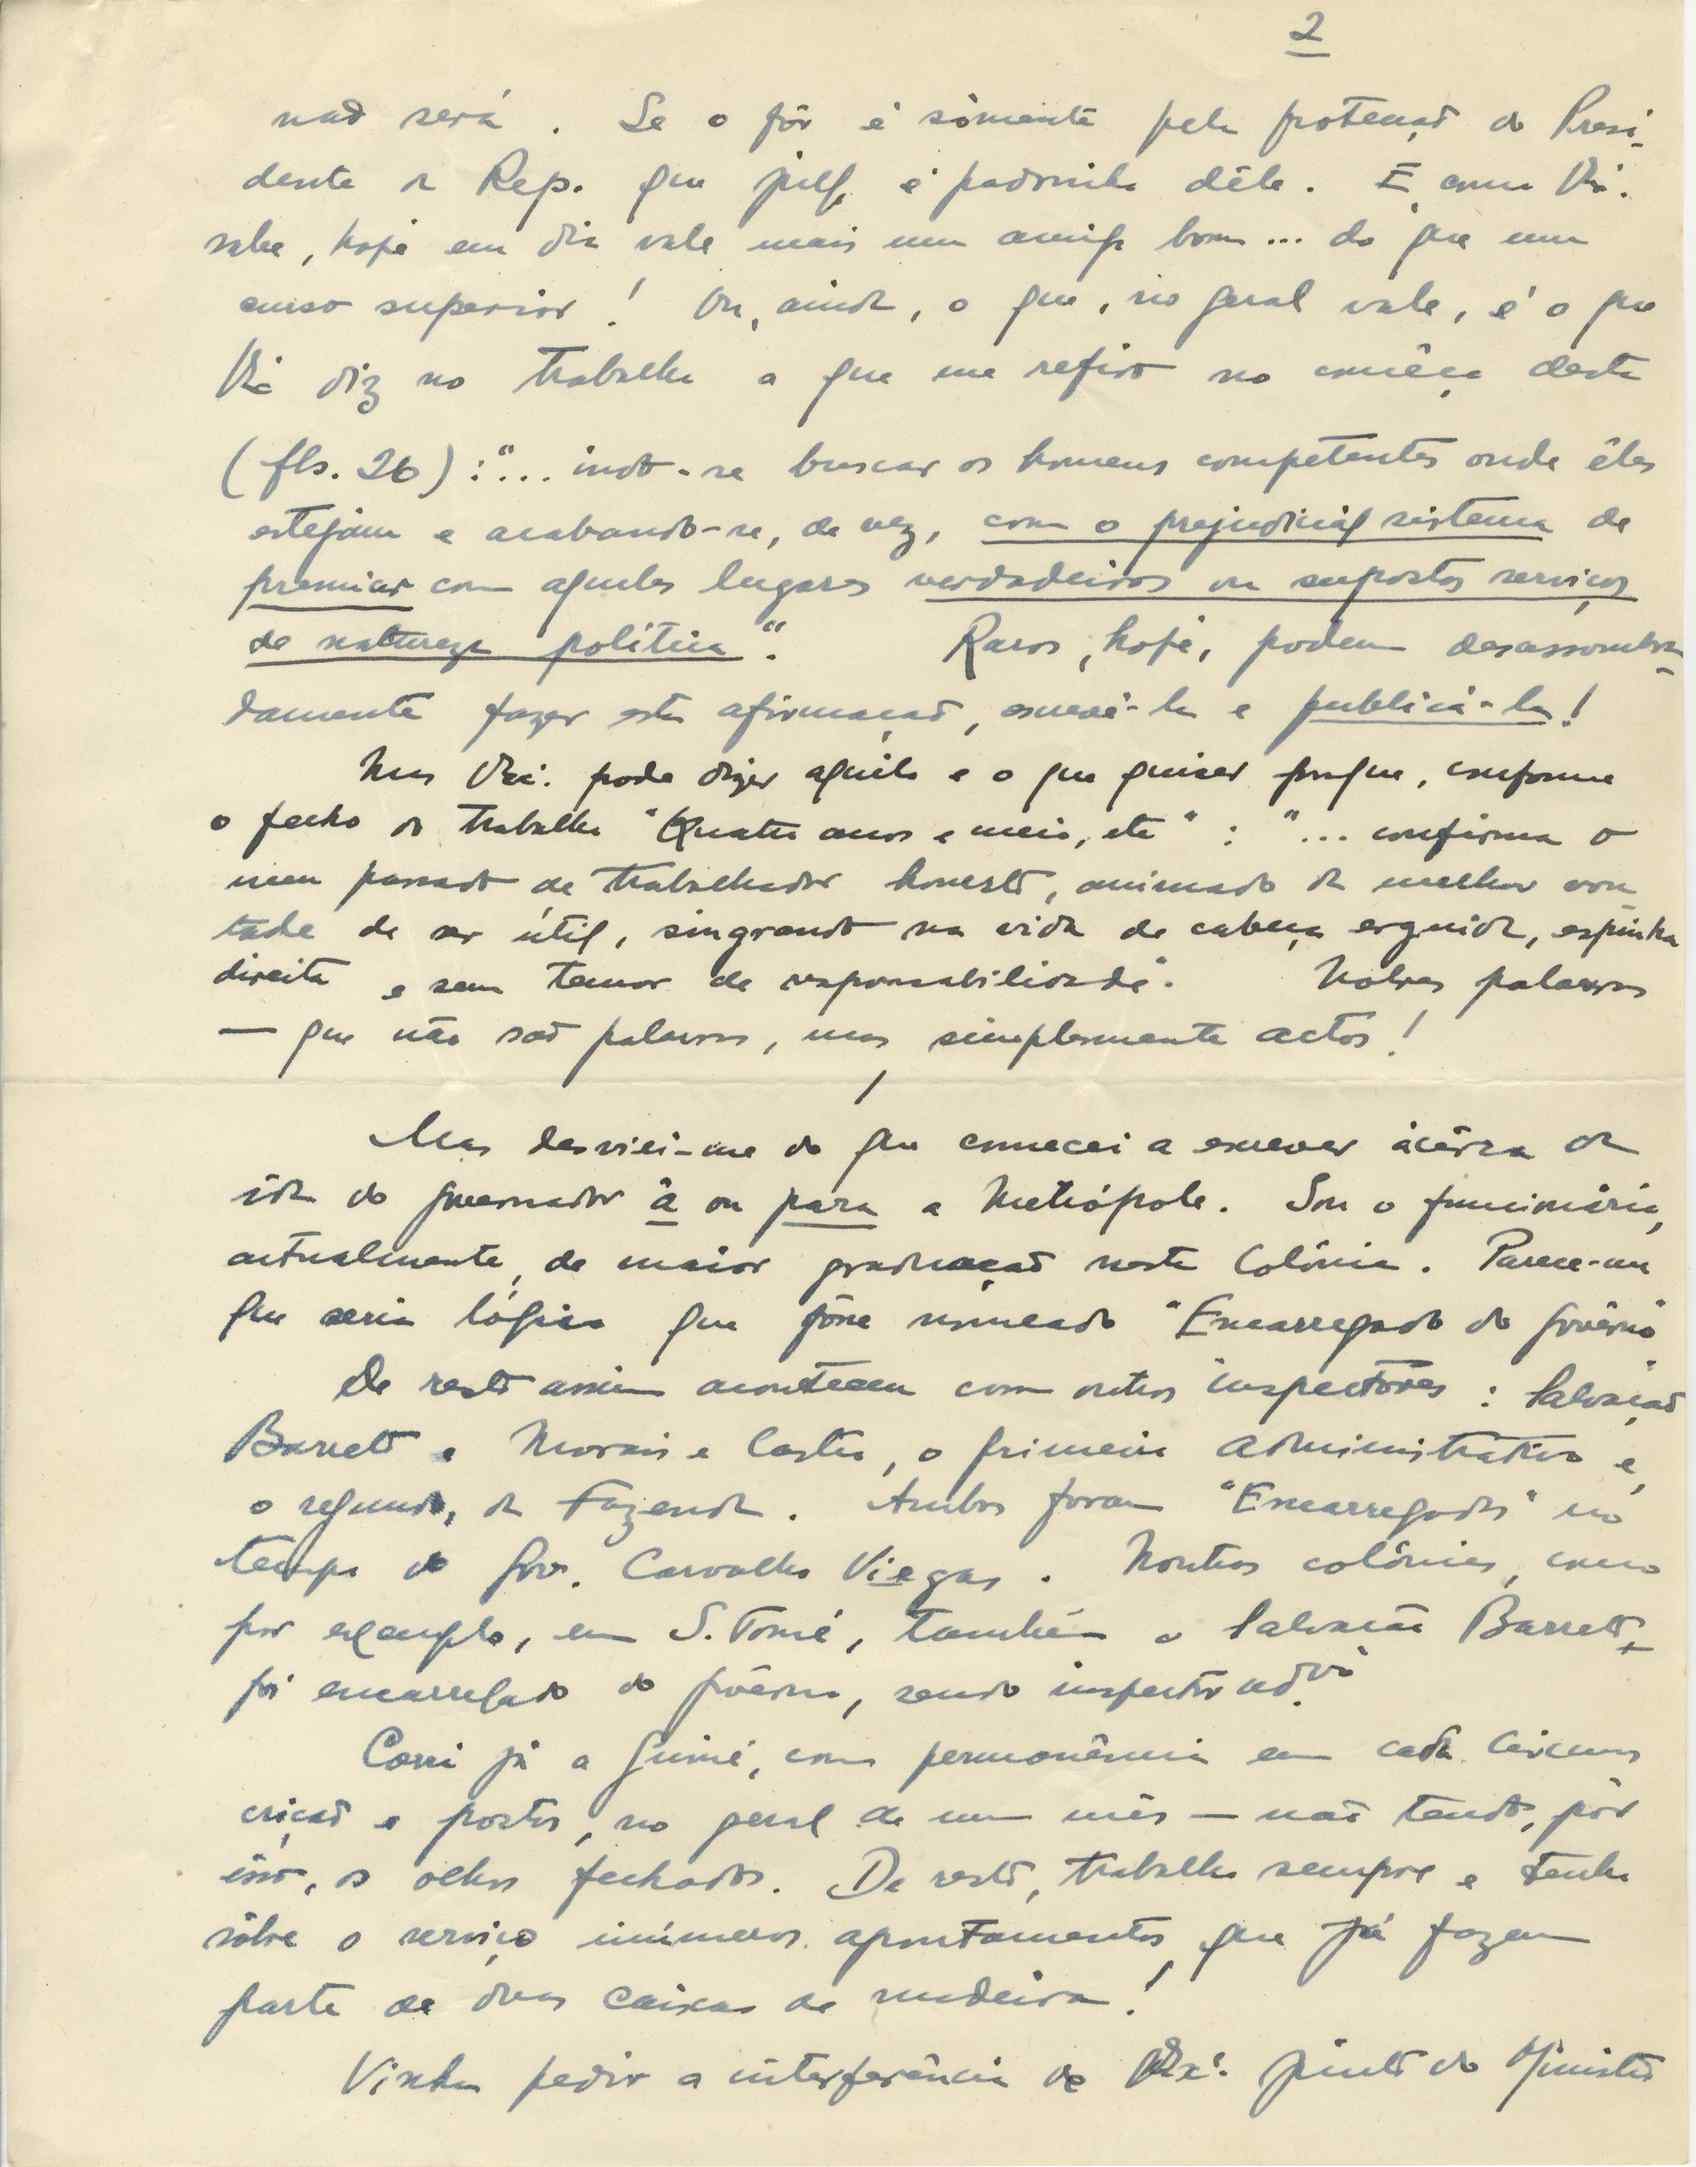 2
não será. Se o fôr é sòmente pela protecção do Presi-
dente da Rep. que julgo é padrinho dêle. E, como V. Exª.
sabe, hoje em dia vale mais um amigo bom... do que um
curso superior! Ou, ainda, o que, no geral vale, é o que
V. Exª diz no trabalho a que me refiro no comêço desta
(fls. 26): "... indo-se buscar os homens competentes onde êles
estejam e acabando-se, de vez, com o prejudicial sistema de
premiar com aqueles lugares verdadeiros ou supostos serviços
de natureza política". Raros, hoje, podem desassombra-
damente fazer esta afirmação, escrevê-la e publicá-la!
Mas V. Exª. pode dizer aquilo e o que quizer porque, conforme
o fecho do trabalho "Quatro anos e meio, etc": "... confirma o
meu passado de trabalhador honesto, animado da melhor von-
tade de ser útil, singrando na vida de cabeça erguida, espinha
direita e sem temor de responsabilidade". Nobres palavras
— que não são palavras, mas simplesmente actos!
/
Mas desviei-me do que comecei a escrever àcêrca da
ida do governador à ou para a Metrópole. Sou o funcionário,
actualmente, de maior graduação nesta Colónia. Parece-me
que seria lógico que fôsse nomeado "Encarregado do Govêrno"
De resto assim aconteceu com outros inspectores: Salvação
Barreto e Morais e Castro, o primeiro administrativo e,
o segundo, da Fazenda. Ambos foram "Encarregados" no
tempo do Gov. Carvalho Viegas. Noutras colónias, como
por exemplo, em S. Tomé, também o Salvação Barreto,
foi encarregado do govêrno, sendo inspector adm.vo
Corri já a Guiné, com permanência em cada circuns
crição e postos, no geral de um mês — não tendo, por
isso, os olhos fechados. De resto, trabalho sempre e tenho
sôbre o serviço inúmeros apontamentos, que já fazem
parte de duas caixas de madeira!
Venho pedir a interferência de V. Exª. junto do Ministro